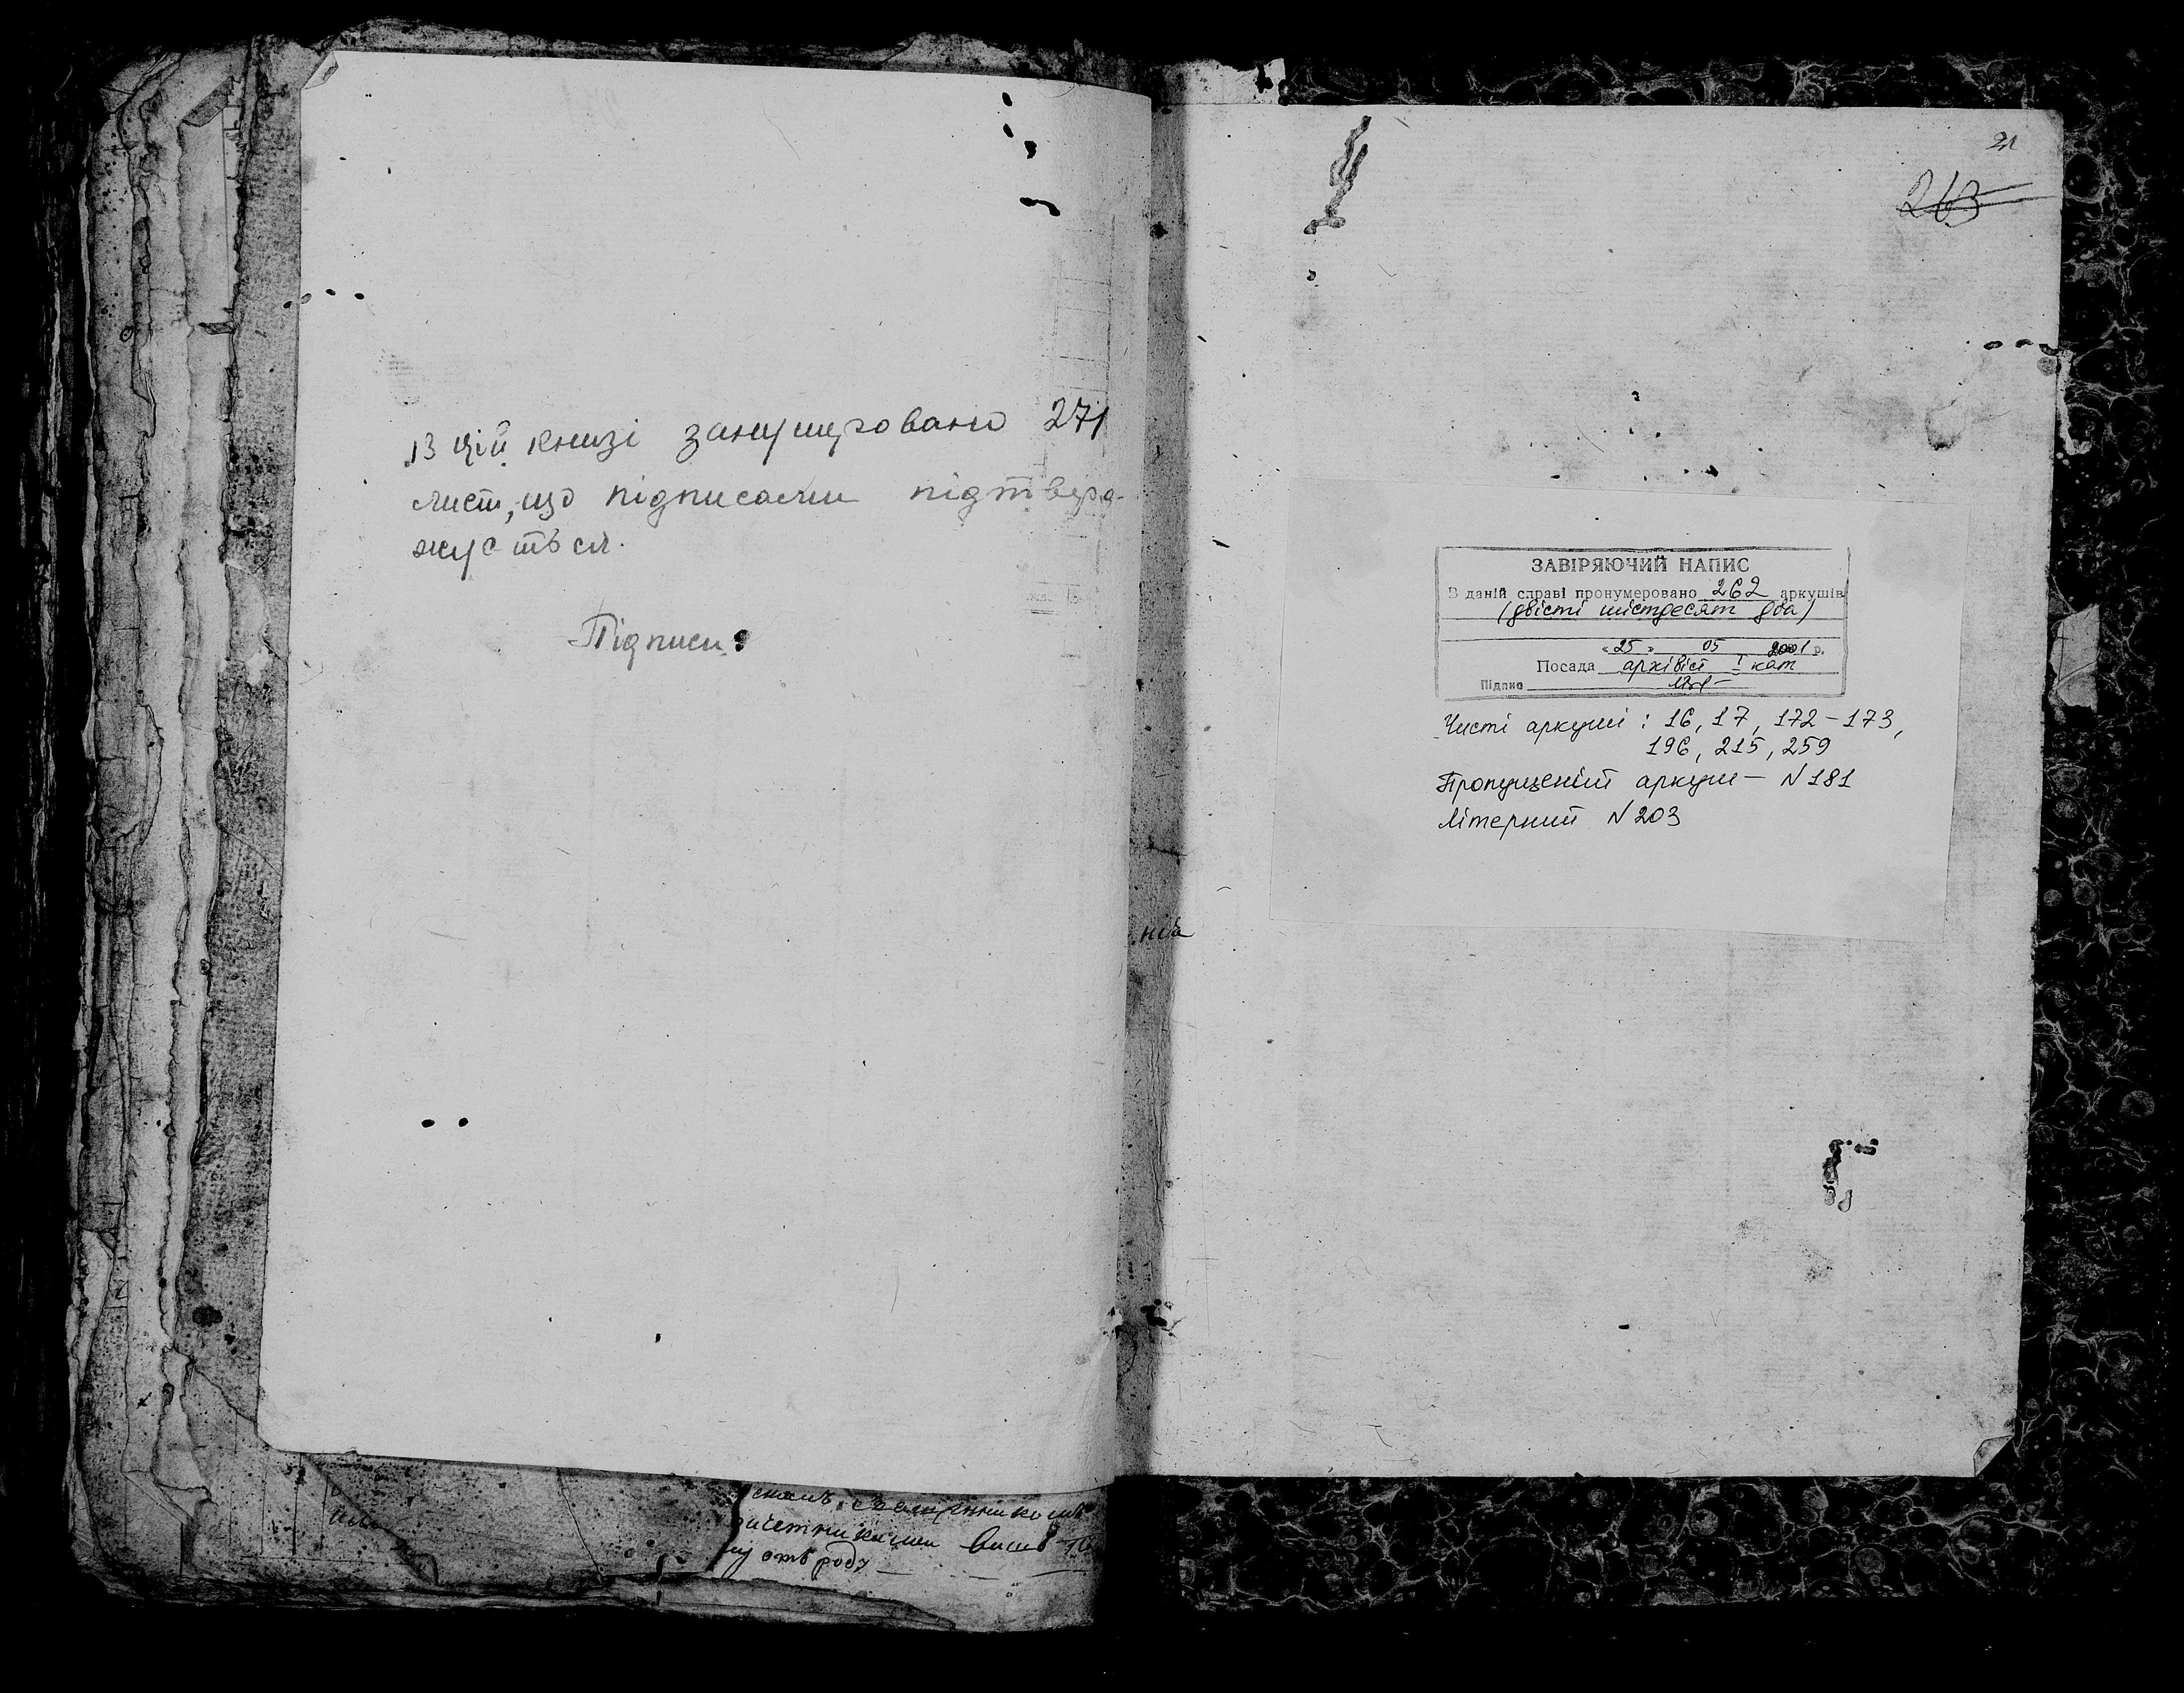 В цій книзі занумеровано 271
лист, що підписами підтверд-
жується.
Підписи:
263
ЗАВІРЯЮЧИЙ НАПИС
В даній справі пронумеровано 262 аркушів
(двісті шістдесят два)
« 25 » 05 2001 р.
Посада архівіст I кат
Підпис
Чисті аркуші: 16, 17, 172-173,
196, 215, 259
Пропущений аркуш - N 181
Літерний N 203
отъ роду